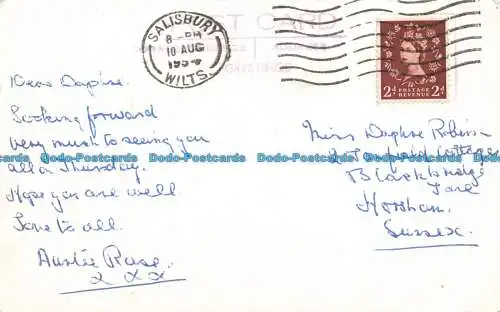 SALISBURY
8-PM
10 AUG
1954
WILTS.
POST CARD
GREETINGS
2d POSTAGE REVENUE 2d
Dear Daphne.
Looking forward
very much to seeing you
all on Thursday.
Hope you are well
Love to all.
Auntie Rose.
x x x
Miss Daphne Robins
Cottages
Blackbridge
Lane
Horsham,
Sussex.
Dodo-Postcards Dodo-Postcards Dodo-Postcards Dodo-Postcards